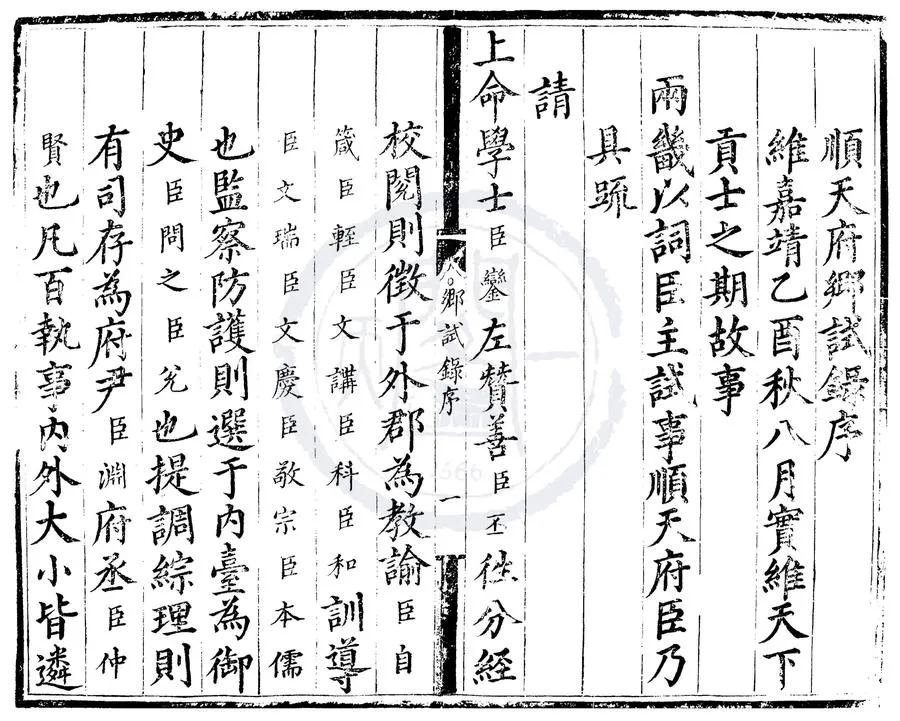 順天府鄉試錄序
維嘉靖乙酉秋八月實維天下
貢士之期故事
兩畿以詞臣主試事順天府臣乃
具疏
請
上命學士臣鑾左贊善臣丕徃分經
鄉試錄序 一
校閱則徴于外郡為教諭臣自
箴臣輊臣文講臣科臣和訓導
臣文瑞臣文慶臣敬宗臣本儒
也監察防護則選于內臺為御
史臣問之臣兊也提調綜理則
有司存為府尹臣淵府丞臣仲
賢也凡百執事內外大小皆遴